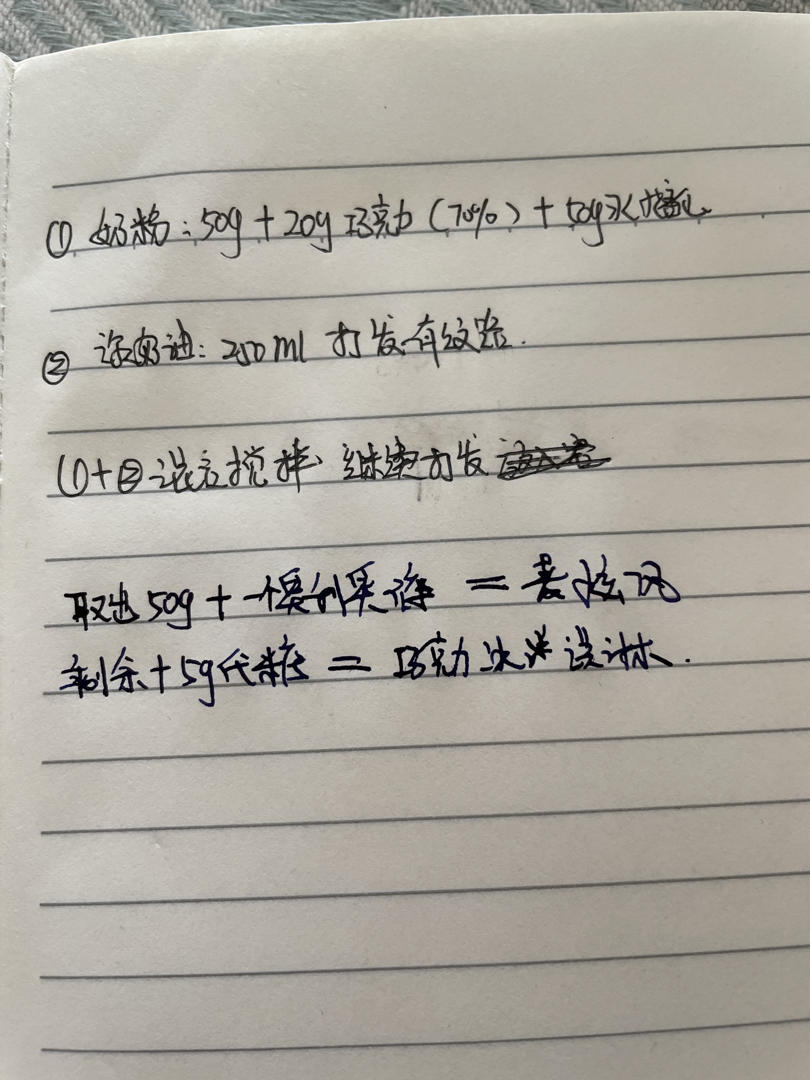 ① 奶粉:50g+20g巧克力(70%)+50g水搅化.
② 淡奶油:250ml 打发有纹路.
①+②混合搅拌 继续打发
取出50g+一个奥利奥 = 麦炫风
剩余+5g代糖 = 巧克力冰淇淋.